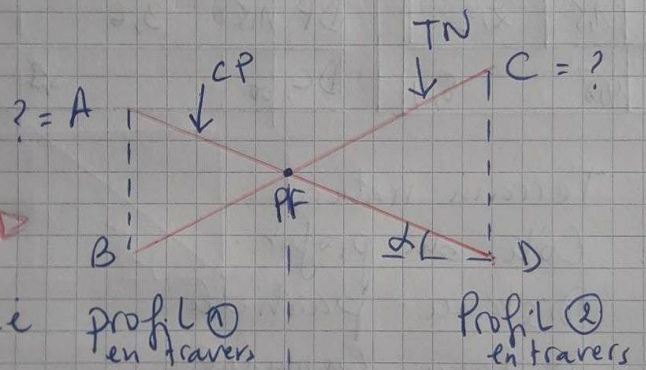 TN
CP
C = ?
? = A
PF
B
α
D
Profil ①
en travers
Profil ②
en travers